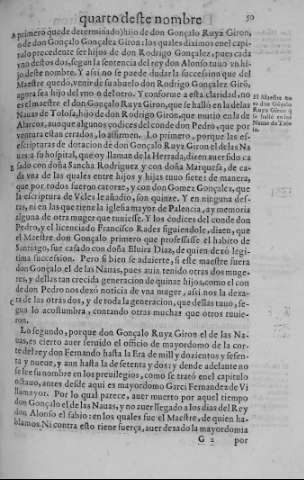 quarto deste nombre
50
primero quede determinado) hijo de don Gonçalo Ruyz Giron,
o de don Gonçalo Gonçalez Giron: los quales diximos en el capi-
tulo precedente ser hijos de don Rodrigo Gonçalez, pues cada
vno destos dos, segun la sentencia del rey don Alonso tuuo en hi-
jo deste nombre. Y asi no se puede dudar la succession que del
Maestre quedo, venir de su abuelo don Rodrigo Gonçalez Girõ,
agora sea hijo del vno o del otro. Y conforme a esta claridad, no
es el maestre el don Gonçalo Ruyz Giron, que se hallò en la de las
Nauas de Tolosa, hijo de don Rodrigo Giron, que murio en la de
Alarcos, aunque algunos codices del conde don Pedro, que por
ventura estan errados, lo affirmen. Lo primero, porque las es-
escripturas de dotacion de dõ Gonçalo Ruyz Giron el de las Na
uas: a su hospital, que oy llaman de la Herrada, dizen auer sido ca
sado con doña Sancha Rodriguez y con doña Marquesa, de ca-
da vna de las quales entre hijos y hijas tuuo siete: de manera,
que por todos fueron catorze, y con don Gomez Gonçalez, que
la escriptura de Vcles le añadio, son quinze. Y en ninguna des-
tas, ni en las que tiene la iglesia mayor de Palencia, ay memoria
alguna de otra muger que tuuiesse. Y los codices del conde don
Pedro, y el licenciado Francisco Rades siguiendole, dizen, que
el Maestre don Gonçalo primero que professasse el habito de
Santiago, fue casado con doña Eluira Diaz, de quien dexò legi-
tima succession. Pero si bien se aduierte, si este maestre fuera
don Gonçalo el de las Nauas, pues auia tenido otras dos muge-
res, y dellas tan crecida generacion de quinze hijos, como el con
de don Pedro nos dexò noticia de vna muger, assi nos la dexa-
ra de las otras dos, y de toda la generacion, que dellas tuuo, se-
gun lo acostumbra, contando otras muchas que otros tuuie-
ron.
Lo segundo, porque don Gonçalo Ruyz Giron el de las Na-
uas, es cierto auer seruido el officio de mayordomo de la cor-
te del rey don Fernando hasta la Era de mill y dozientos y sesen-
ta y nueue, y aun hasta la de setenta y dos: y dende adelante no
se lee su nombre en los preuilegios, como se tratò en el capitulo
octauo, antes desde aqui es mayordomo Garci Fernandez de Vi
llamayor. Por lo qual parece, auer muerto por aquel tiempo
don Gonçalo el de las Nauas, y no auer llegado a los dias del Rey
don Alonso el sabio: en los quales fue el Maestre, de quien ha-
blamos. Ni contra esto tiene fuerça, auer dexado la mayordomia
G 2 por
El Maestre no
es don Gõçalo
Ruyz Girõ q̃
se hallò en las
Nauas de Tolo
sa.